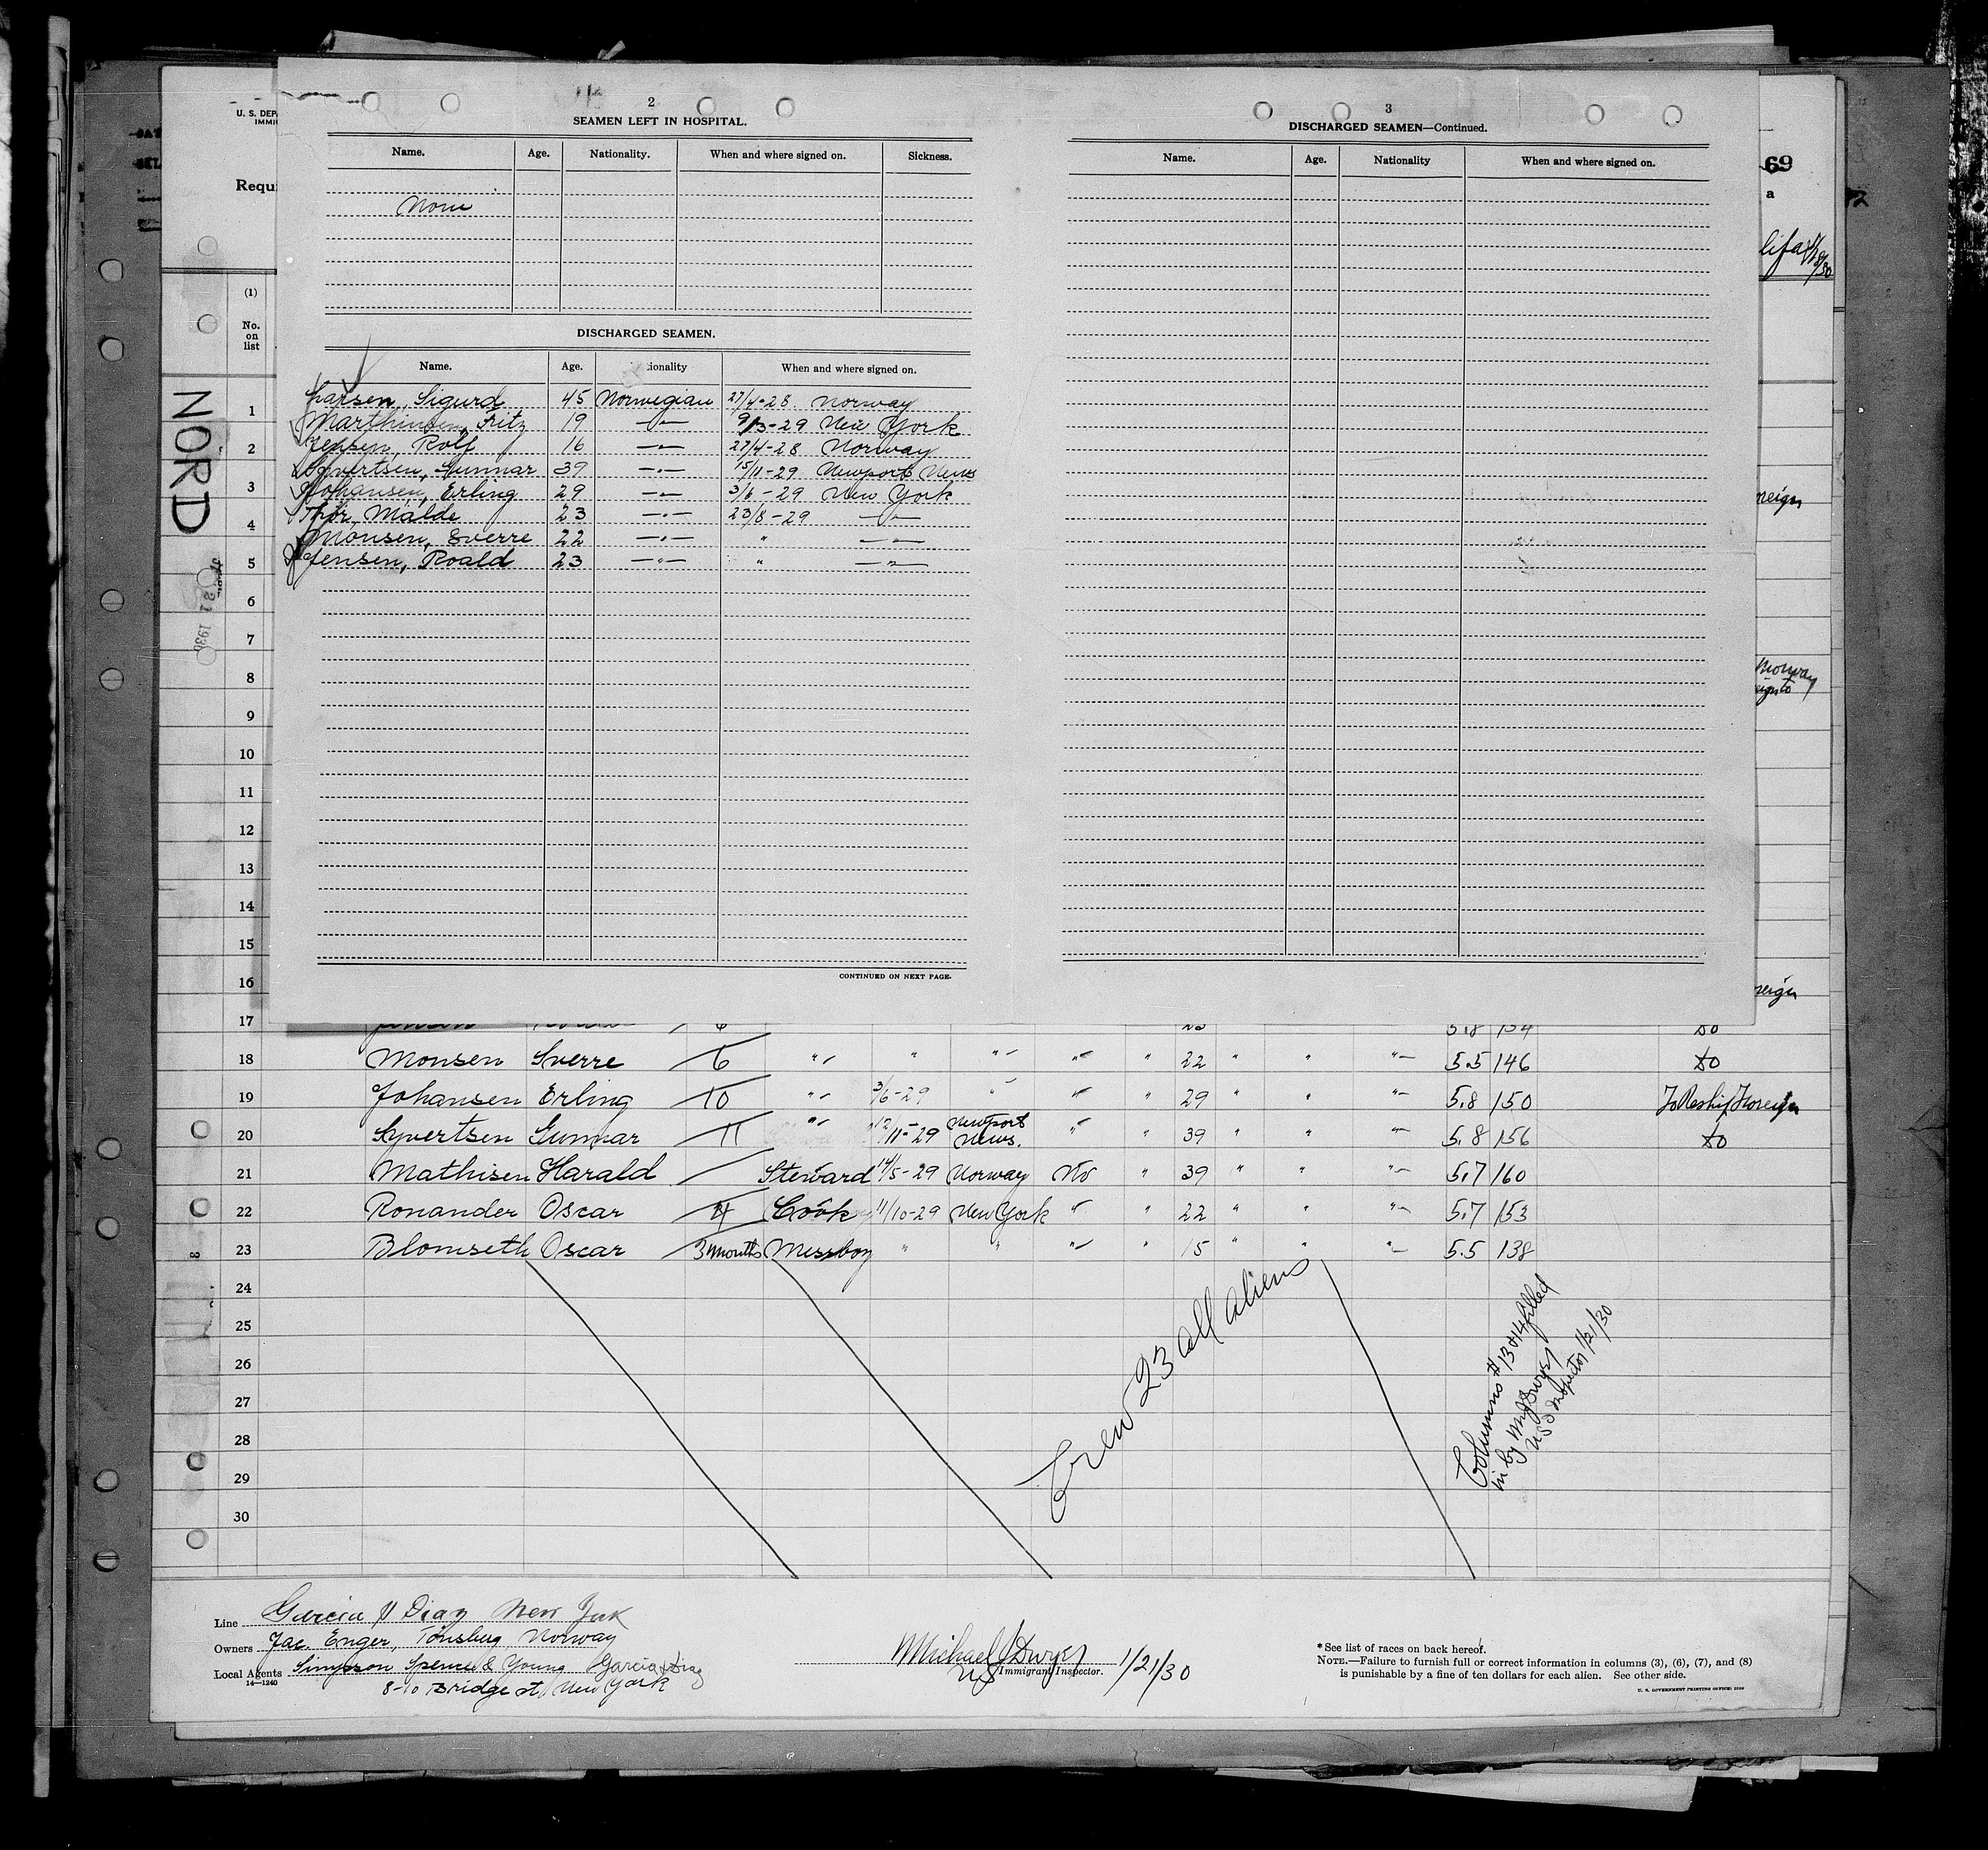 2
SEAMEN LEFT IN HOSPITAL.
Name. Age. Nationality. When and where signed on. Sickness.
None
DISCHARGED SEAMEN.
Name. Age. tionality When and where signed on.
Larsen, Sigurd 45 Norwegian 27/4-28 Norway
Marthinsen, Fritz 19 —"— 9/3-29 New York
Jensen, Rolf 16 —"— 27/4-28 Norway
Syvertsen, Gunnar 39 —"— 15/11-29 Newport News
Johansen, Erling 29 —"— 3/6-29 New York
Thor, Malde 23 —"— 23/8-29 —"—
Monsen, Sverre 22 —"— " —"—
Jensen, Roald 23 —"— " —"—
CONTINUED ON NEXT PAGE.
3
DISCHARGED SEAMEN—Continued.
Name. Age. Nationality When and where signed on.
U. S. DEP
IMMI
Requ
69
a
lifax
1/18/30
(1)
No.
on
list
NORD
21 1930
1
2
3
4
5
6
7
8
9
10
11
12
13
14
15
16
17
reign
Norway
reign
5.8 154 do
18 Monsen Sverre 6 "— " "— "— " 22 " " "— 5.5 146 do
19 Johansen Erling 10 "— 3/6-29 " "— " 29 " " "— 5.8 150 To Reship Foreign
20 Syvertsen Gunnar 11 "— 11-29 Newport News. "— " 39 " " "— 5.8 156 do
21 Mathisen Harald Steward 14/5-29 Norway No " 39 " " "— 5.7 160
22 Ronander Oscar 4 Cook 11/10-29 New York " " 22 " " "— 5.7 153
23 Blomseth Oscar 3 months Messboy " " "— " 15 " " "— 5.5 138
24
25
26
27
28
29
30
3
Crew 23 all aliens
Columns # 13 & 14 filled
in by M J Dwyer
U S Inspector 1/21/30
Line Garcia & Diaz New York
Owners Jac. Enger, Tönsberg, Norway
Local Agents Simpson Spence & Young Garcia & Diaz
14—1240
8-10 Bridge st, New York
Michael J Dwyer
US Immigrant Inspector. 1/21/30
* See list of races on back hereof.
NOTE.—Failure to furnish full or correct information in columns (3), (6), (7), and (8)
is punishable by a fine of ten dollars for each alien. See other side.